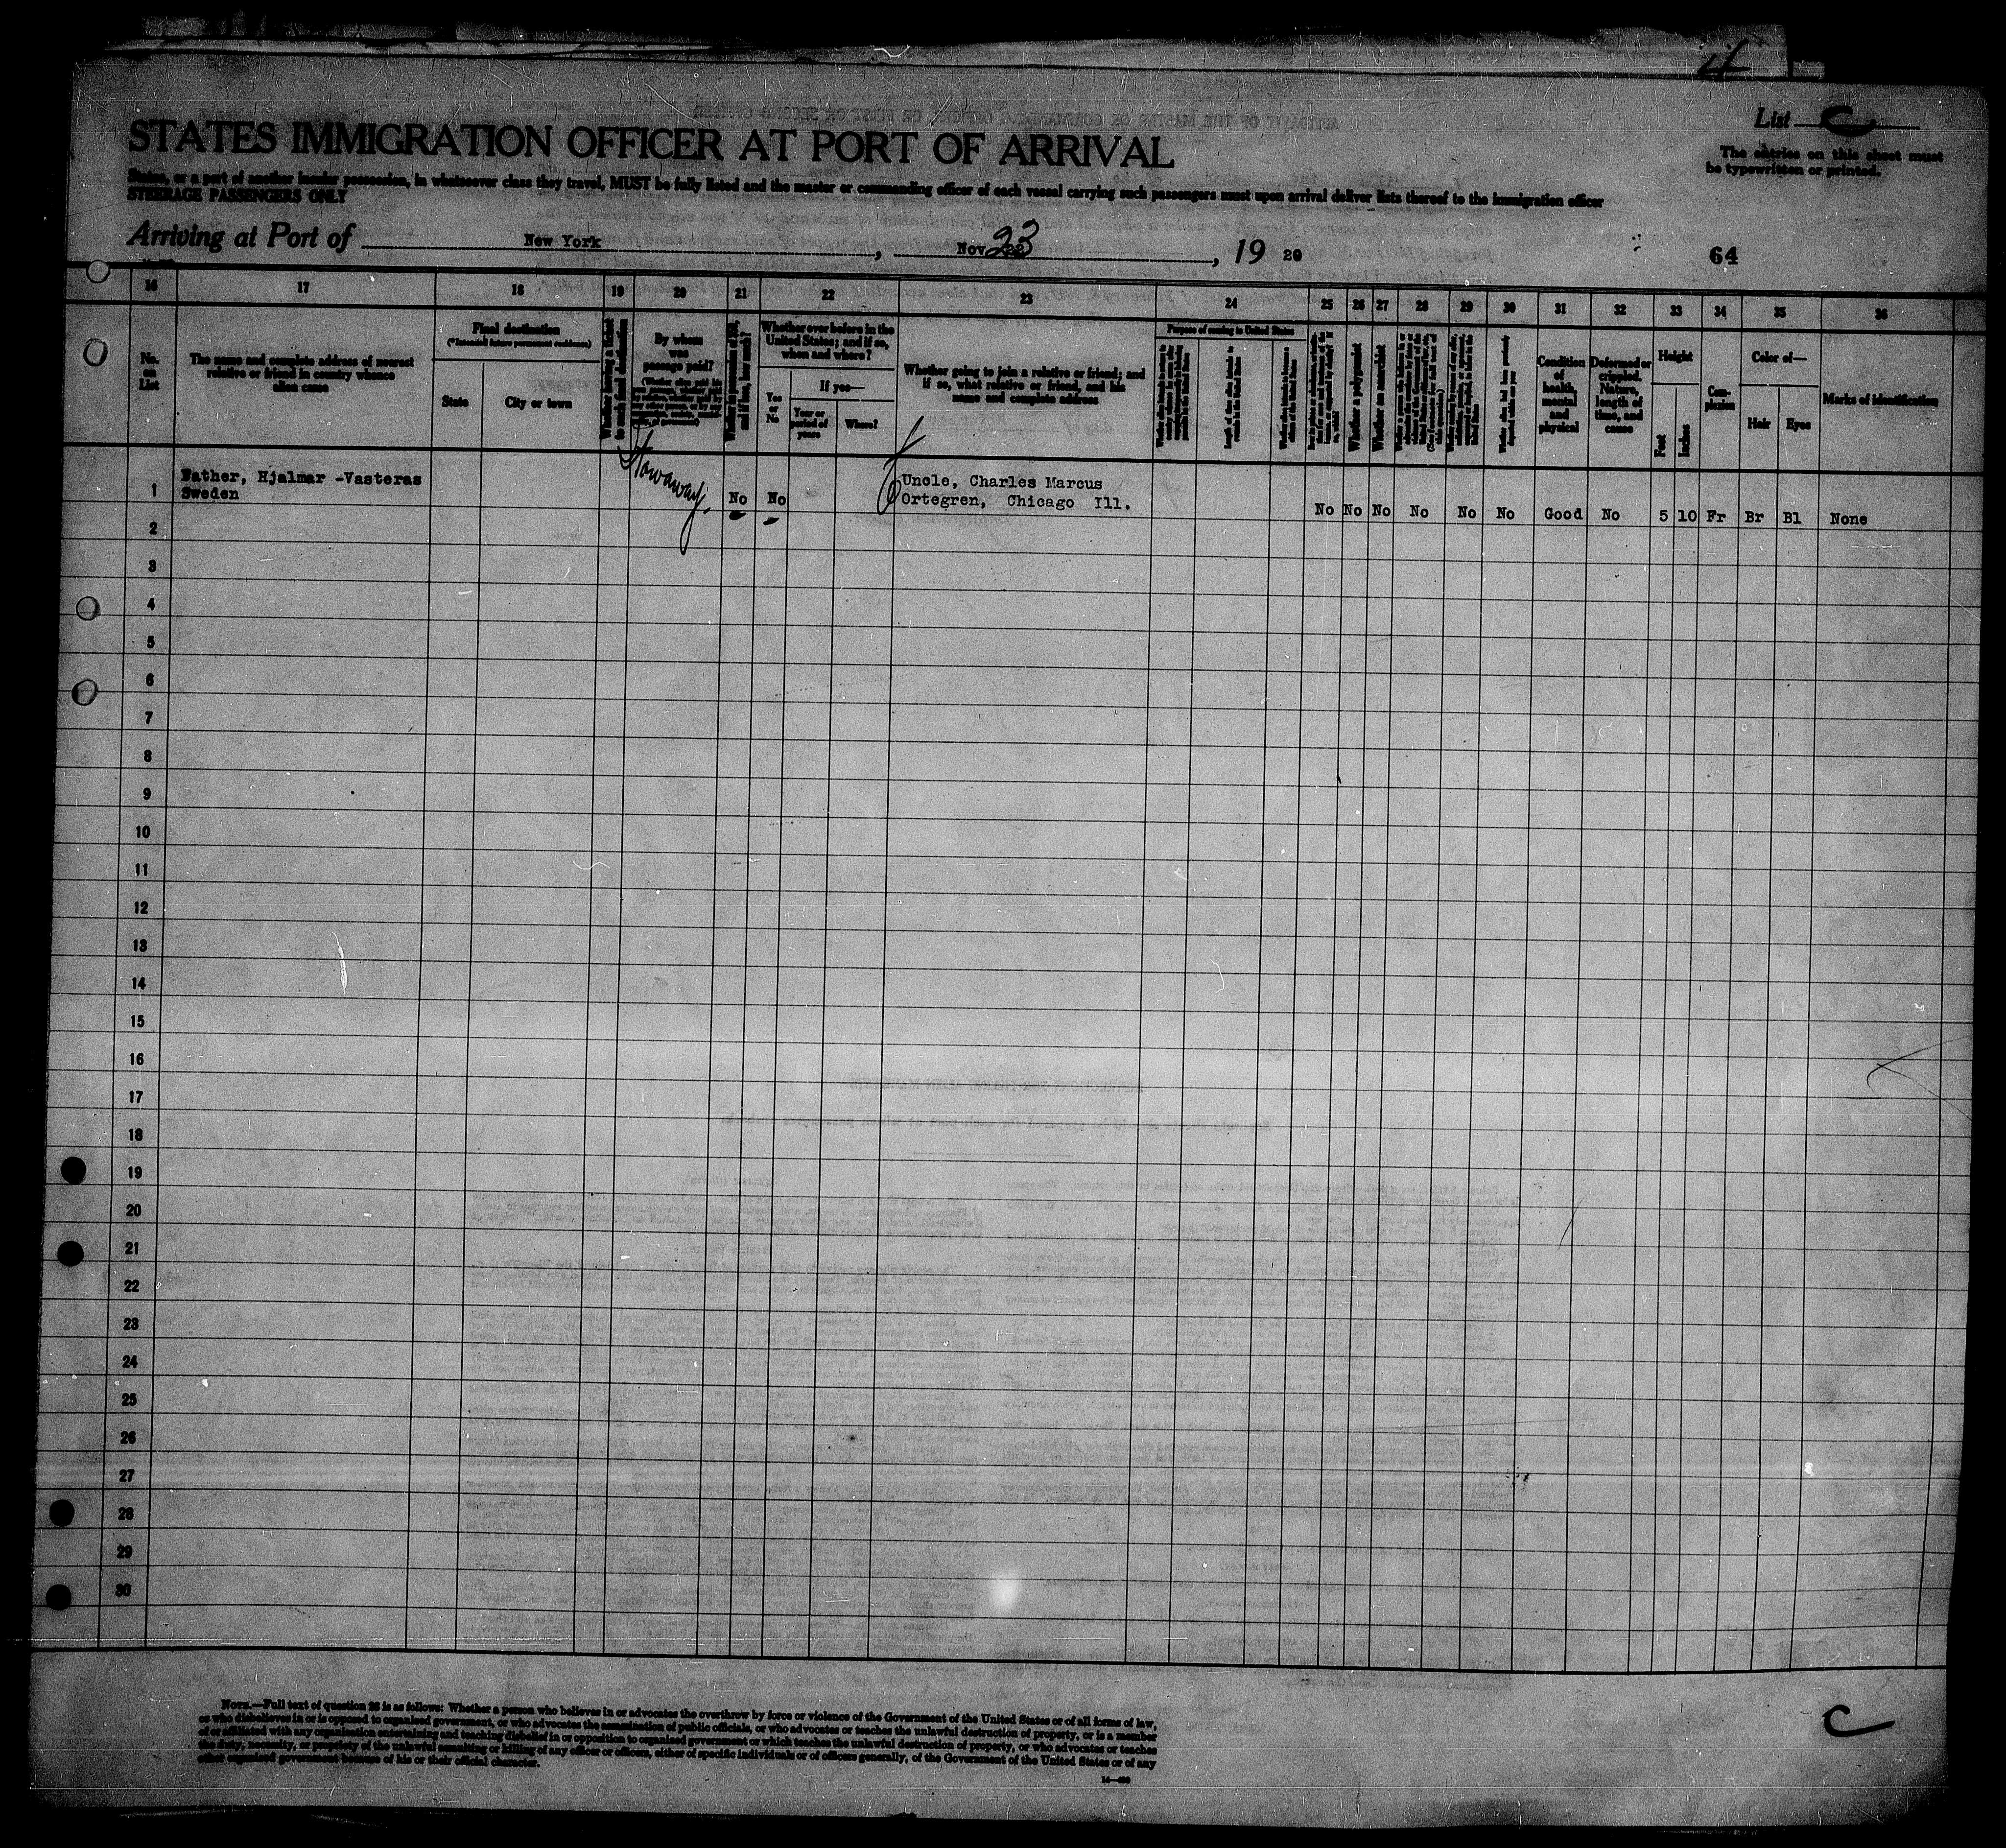 List C
The entries on this sheet must
be typewritten or printed.
STATES IMMIGRATION OFFICER AT PORT OF ARRIVAL
States, or a part of another insular possession, in whatsoever class they travel, MUST be fully listed and the master or commanding officer of each vessel carrying such passengers must upon arrival deliver lists thereof to the immigration officer
STEERAGE PASSENGERS ONLY
Arriving at Port of New York, Nov 23, 19 20
64
16 17 18 19 20 21 22 23 24 25 26 27 28 29 30 31 32 33 34 35 36
No.
on
List
The name and complete address of nearest
relative or friend in country whence
alien came
Final destination
(*Intended future permanent residence)
State
City or town
Whether having a ticket
to such final destination
By whom
was
passage paid?
Whether ever before in the
United States; and if so,
when and where?
Yes
or
No
If yes—
Year or
period of
years
Where?
Whether going to join a relative or friend; and
if so, what relative or friend, and his
name and complete address
Purpose of coming to United States
Whether a polygamist
Whether an anarchist
Condition
of
health,
mental
and
physical
Deformed or
crippled.
Nature,
length of
time, and
cause
Height
Feet
Inches
Com-
plexion
Color of—
Hair
Eyes
Marks of identification
1 Father, Hjalmar -Vasteras
Sweden
Stowaway.
No No
Uncle, Charles Marcus
Ortegren, Chicago Ill.
No No No No No No Good No 5 10 Fr Br Bl None
2
3
4
5
6
7
8
9
10
11
12
13
14
15
16
17
18
19
20
21
22
23
24
25
26
27
28
29
30
NOTE.—Full text of question 28 is as follows: Whether a person who believes in or advocates the overthrow by force or violence of the Government of the United States or of all forms of law,
or who disbelieves in or is opposed to organized government, or who advocates the assassination of public officials, or who advocates or teaches the unlawful destruction of property, or is a member
of or affiliated with any organization entertaining and teaching disbelief in or opposition to organized government or which teaches the unlawful destruction of property, or who advocates or teaches
the duty, necessity, or propriety of the unlawful assaulting or killing of any officer or officers, either of specific individuals or of officers generally, of the Government of the United States or of any
other organized government because of his or their official character.
C